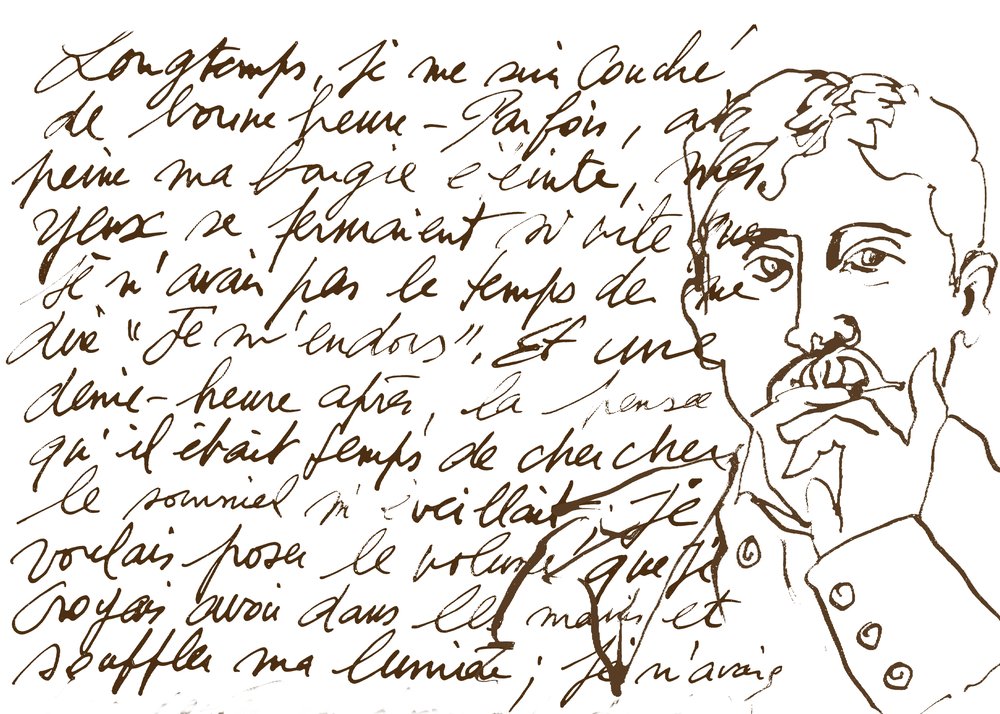 Longtemps, je me suis couché
de bonne heure – Parfois, à
peine ma bougie éteinte, mes
yeux se fermaient si vite que
je n'avais pas le temps de me
dire "Je m'endors". Et une
demie-heure après, la pensée
qu'il était temps de chercher
le sommeil m'éveillait ; je
voulais poser le volume que je
croyais avoir dans les mains et
souffler ma lumière ; je n'avais